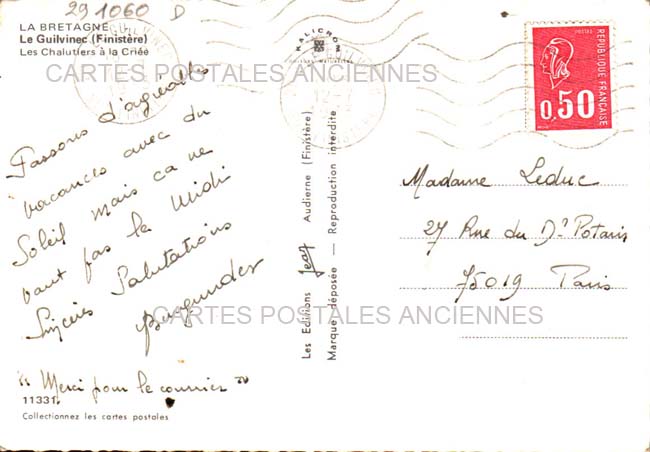 29 1060 D
LA BRETAGNE
Le Guilvinec (Finistère)
Les Chalutiers à la Criée
KALICROM
POSTES
RÉPUBLIQUE FRANÇAISE
0,50
CARTES POSTALES ANCIENNES
Passons d'agréables
vacances avec du
Soleil mais ca ne
vaut pas le Midi
Sincères Salutations
"Merci pour le courrier"
11331
Collectionnez les cartes postales
Les Editions Jean Audierne (Finistère)
Marque déposée — Reproduction interdite
Madame Leduc
27 Rue du Dr Potain
75019 Paris
CARTES POSTALES ANCIENNES